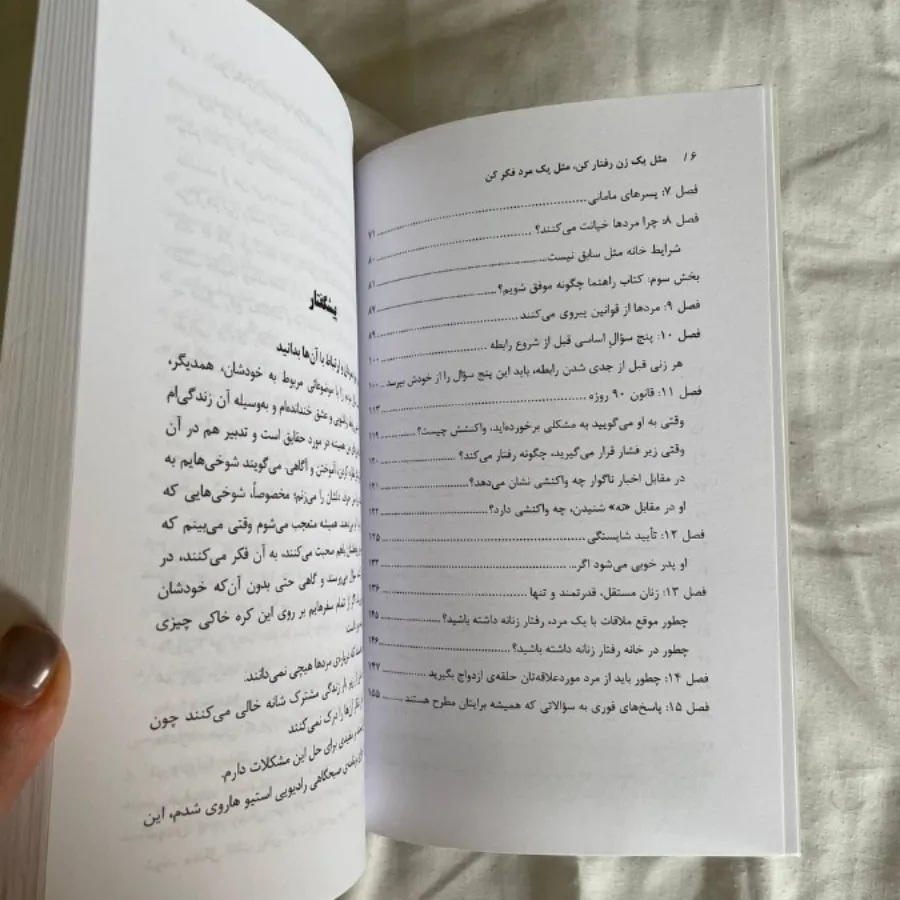 ۶ / مثل یک زن رفتار کن، مثل یک مرد فکر کن
فصل ۷: پسرهای مامانی ........ ۷۱
فصل ۸: چرا مردها خیانت می‌کنند؟ ........ ۸۰
شرایط خانه مثل سابق نیست ........ ۸۱
بخش سوم: کتاب راهنما چگونه موفق شویم؟ ........ ۸۷
فصل ۹: مردها از قوانین پیروی می‌کنند ........ ۸۹
فصل ۱۰: پنج سؤال اساسی قبل از شروع رابطه ........ ۱۰۰
هر زنی قبل از جدی شدن رابطه، باید این پنج سؤال را از خودش بپرسد ... ۱۰۰
فصل ۱۱: قانون ۹۰ روزه ........ ۱۱۳
وقتی به او می‌گویید به مشکلی برخورده‌اید، واکنشش چیست؟ ........ ۱۱۹
وقتی زیر فشار قرار می‌گیرید، چگونه رفتار می‌کند؟ ........ ۱۲۰
در مقابل اخبار ناگوار چه واکنشی نشان می‌دهد؟ ........ ۱۲۱
او در مقابل «نه» شنیدن، چه واکنشی دارد؟ ........ ۱۲۲
فصل ۱۲: تأیید شایستگی ........ ۱۲۵
او پدر خوبی می‌شود اگر... ........ ۱۳۳
فصل ۱۳: زنان مستقل، قدرتمند و تنها ........ ۱۳۶
چطور موقع ملاقات با یک مرد، رفتار زنانه داشته باشید؟ ........ ۱۴۵
چطور در خانه رفتار زنانه داشته باشید؟ ........ ۱۴۶
فصل ۱۴: چطور باید از مرد موردعلاقه‌تان حلقه‌ی ازدواج بگیرید ........ ۱۴۷
فصل ۱۵: پاسخ‌های فوری به سؤالاتی که همیشه برایتان مطرح هستند ........ ۱۵۵
پیشگفتار
و ارتباط با آن‌ها بدانید
را با موضوعاتی مربوط به خودشان، همدیگر،
و عشق خندانده‌ام و به‌وسیله آن زندگی‌ام
همیشه در مورد حقایق است و تدبیر هم در آن
آموختن و آگاهی. می‌گویند شوخی‌هایم به
دلشان را می‌زنم؛ مخصوصاً، شوخی‌هایی که
همیشه متعجب می‌شوم وقتی می‌بینم که
باهم صحبت می‌کنند، به آن فکر می‌کنند، در
سؤال می‌پرسند و گاهی حتی بدون آن‌که خودشان
از تمام سفرهایم بر روی این کره خاکی چیزی
است
که درباره‌ی مردها هیچی نمی‌دانند.
زیر بار زندگی مشترک شانه خالی می‌کنند چون
آن‌ها را درک نمی‌کنند
مفیدی برای حل این مشکلات دارم.
برنامه‌ی صبحگاهی رادیویی استیو هاروی شدم، این